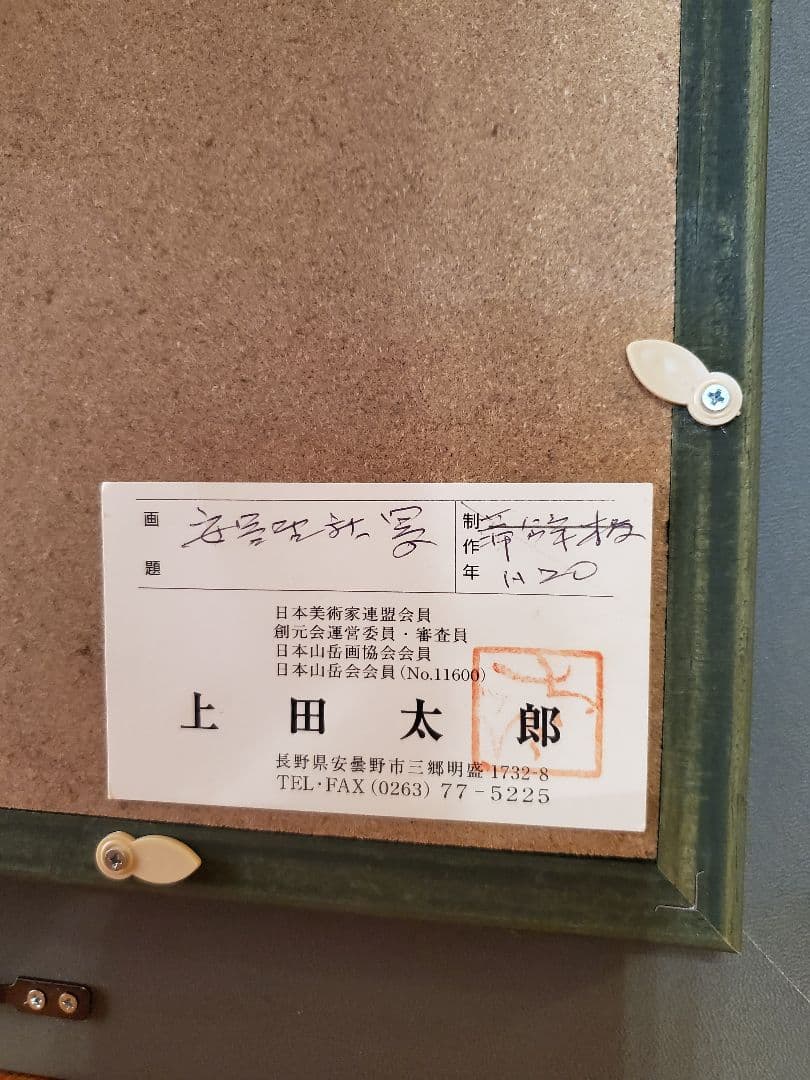 画題
制作年
H20
日本美術家連盟会員
創元会運営委員・審査員
日本山岳画協会会員
日本山岳会会員(No.11600)
上田太郎
長野県安曇野市三郷明盛1732-8
TEL・FAX(0263) 77-5225